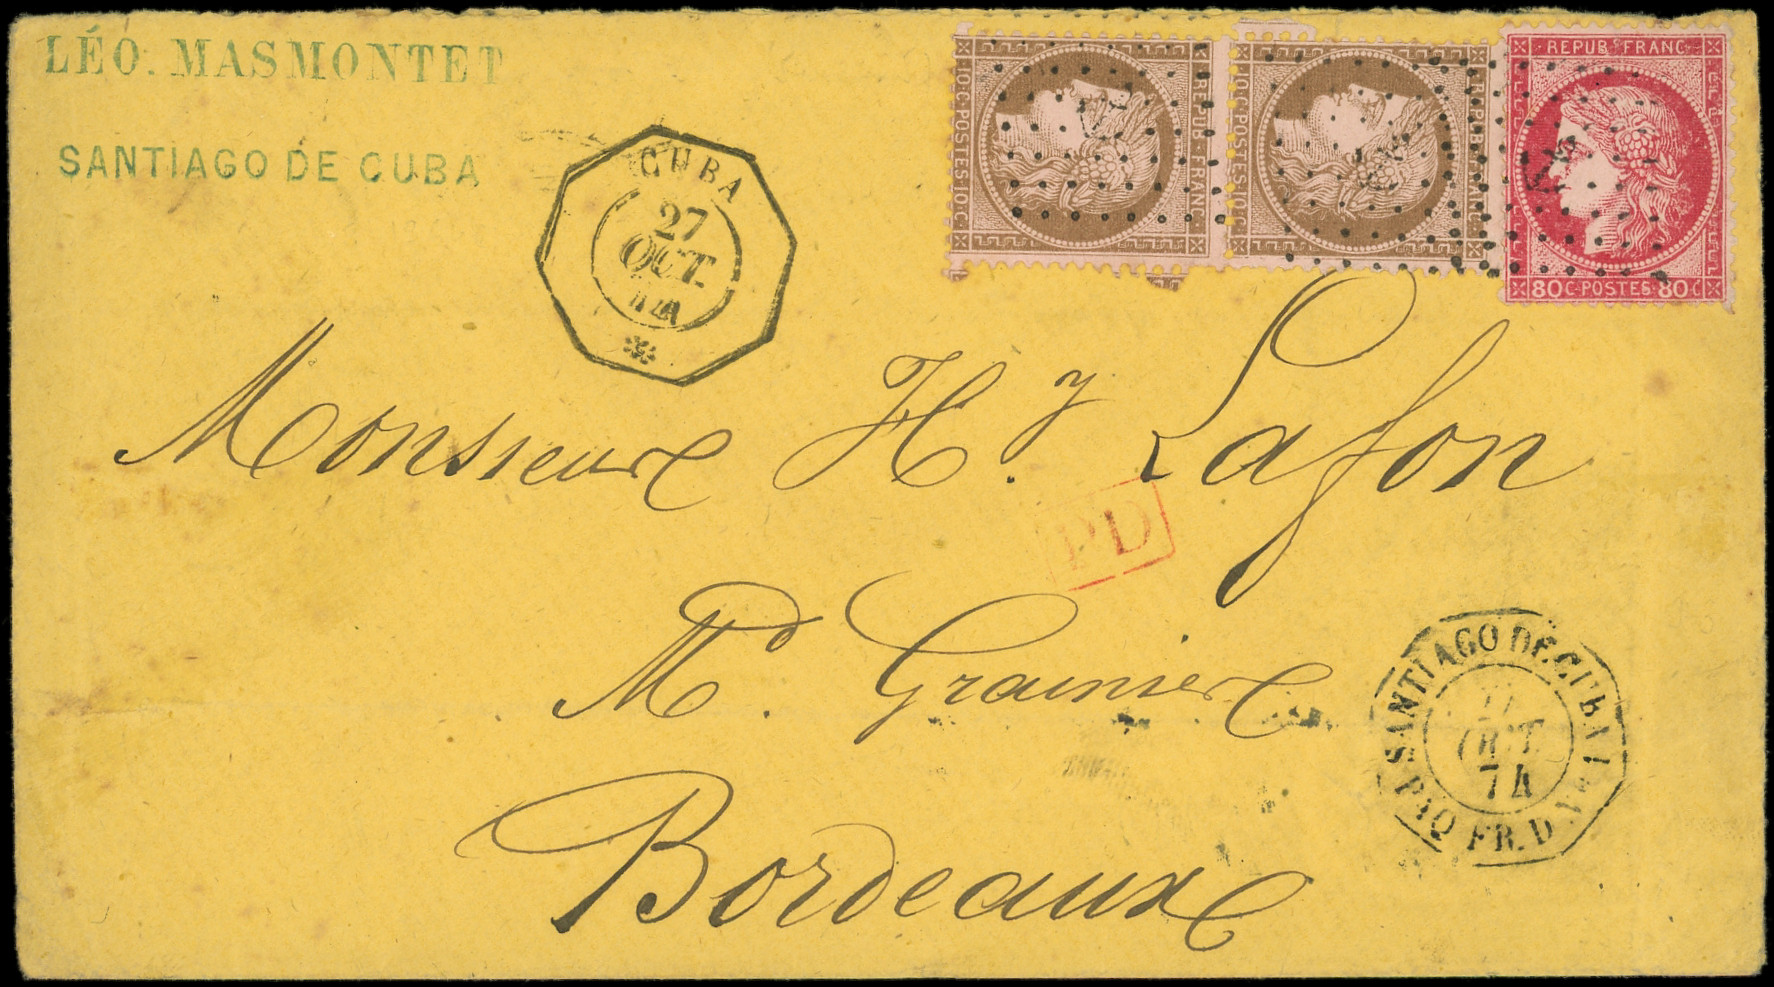 LÉO. MASMONTET
SANTIAGO DE CUBA
CUBA
27
OCT.
10·C·POSTES·10·C
REPUB·FRANC
10·C·POSTES·10·C
REPUB·FRANC
REPUB·FRANC
80C·POSTES·80C
Monsieur Hy. Lafon
PD
Md. Grainier
Bordeaux
SANTIAGO DE CUBA
OCT.
74
PAQ FR. D